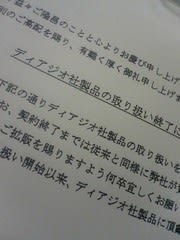 益々ご隆昌のことと心よりお慶び申し上げ
別のご高配を賜り、有難く厚く御礼申し上げ
ディアジオ社製品の取り扱い終了に
下記の通りディアジオ社製品の取り扱いを
お、契約終了までは従来と同様に弊社が
ご拡販を賜りますよう何卒宜しくお願い
扱い開始以来、ディアジオ社製品に頂戴